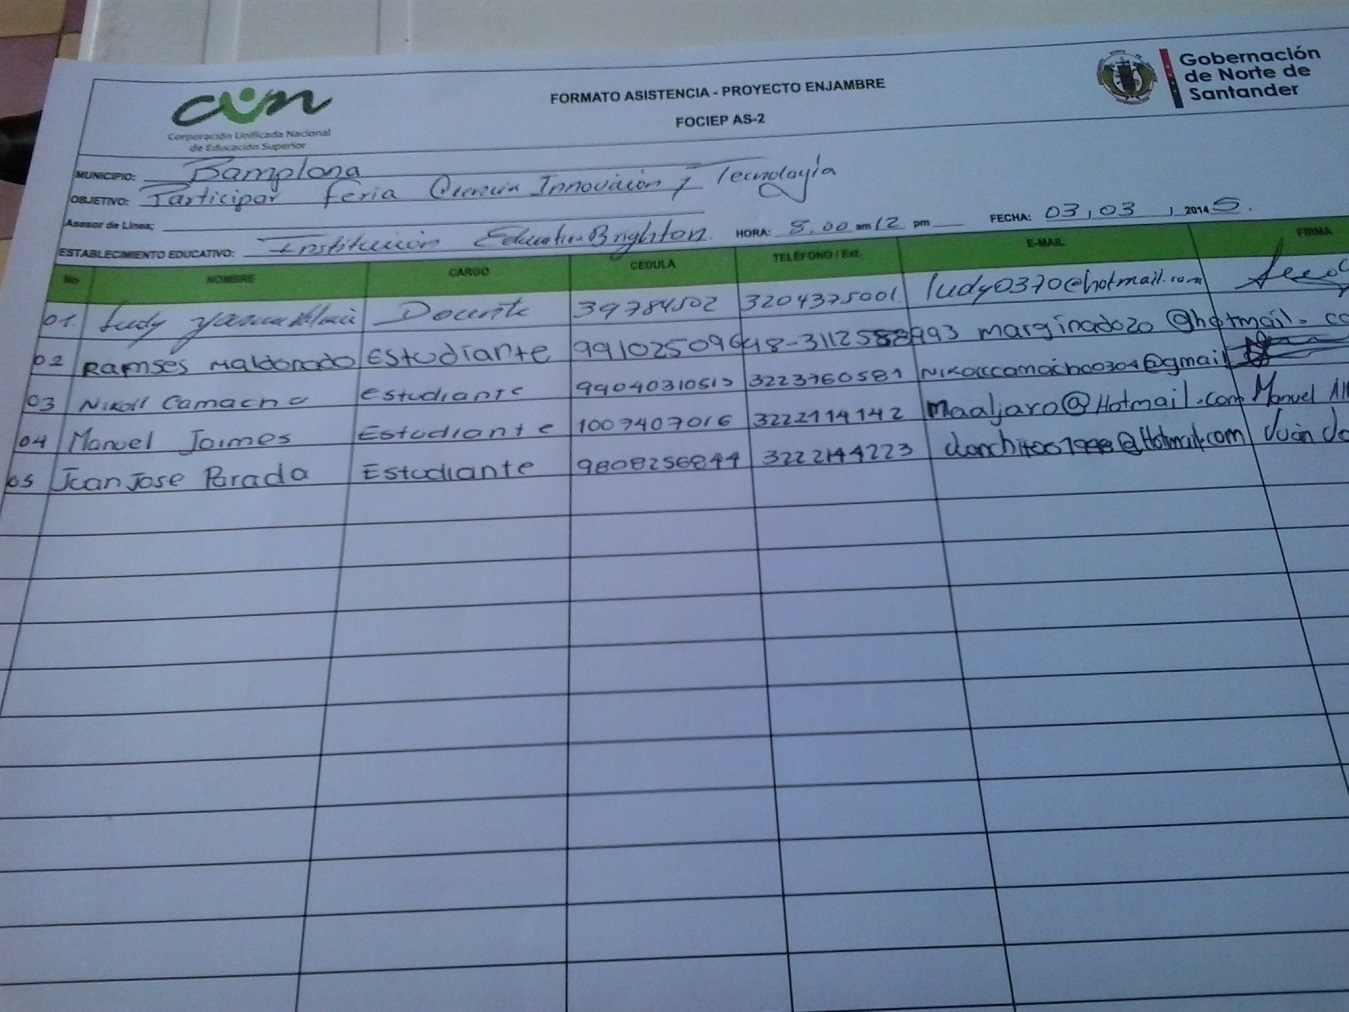 CUN
Corporación Unificada Nacional
de Educación Superior
FORMATO ASISTENCIA - PROYECTO ENJAMBRE
FOCIEP AS-2
Gobernación
de Norte de
Santander
MUNICIPIO: Pamplona
OBJETIVO: Participar Feria Ciencia Innovación y Tecnología
Asesor de Linea:
ESTABLECIMIENTO EDUCATIVO: Institución Educativa Brighton. HORA: 8.00 am 12 pm FECHA: 03, 03, 2014 5.
No NOMBRE CARGO CEDULA TELÉFONO / Ext. E-MAIL FIRMA
01 Ludy Docente 39784502 3204375001 ludy0370@hotmail.com
02 Ramses Maldonado Estudiante 99102509648-3112588993 marginado20@hotmail.co
03 Nikoll Camacho estudiante 99040310513 3223760581 Nikollcamacho0304@gmail
04 Manuel Jaimes Estudiante 1007407016 3222114142 maaljaro@Hotmail.com Manuel Al
05 Juan Jose Parada Estudiante 9808256844 3222144223 Juan Jo